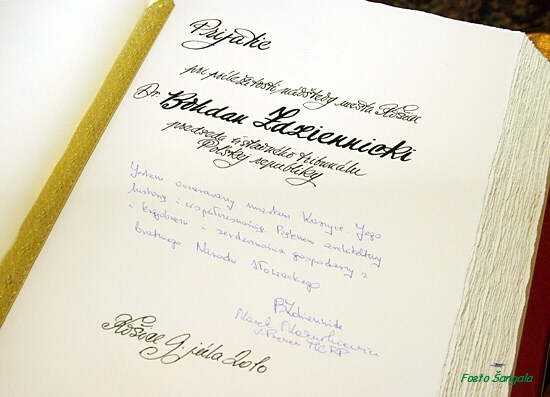 Prijatie
pri príležitosti návštevy mesta Košice
Dr. Bohdan Zdziennicki
predsedu ústavného tribunálu
Poľskej republiky
Jestem oczarowany miastem Koszyce. Jego
historią i współczesnością. Pięknem architektury
i serdecznością gospodarzy z
bratniego Narodu Słowackiego
BZdziennicki
Marek Mazurkiewicz
V-Prezes TK RP
Košice 9. júla 2010
Foeto Šangala